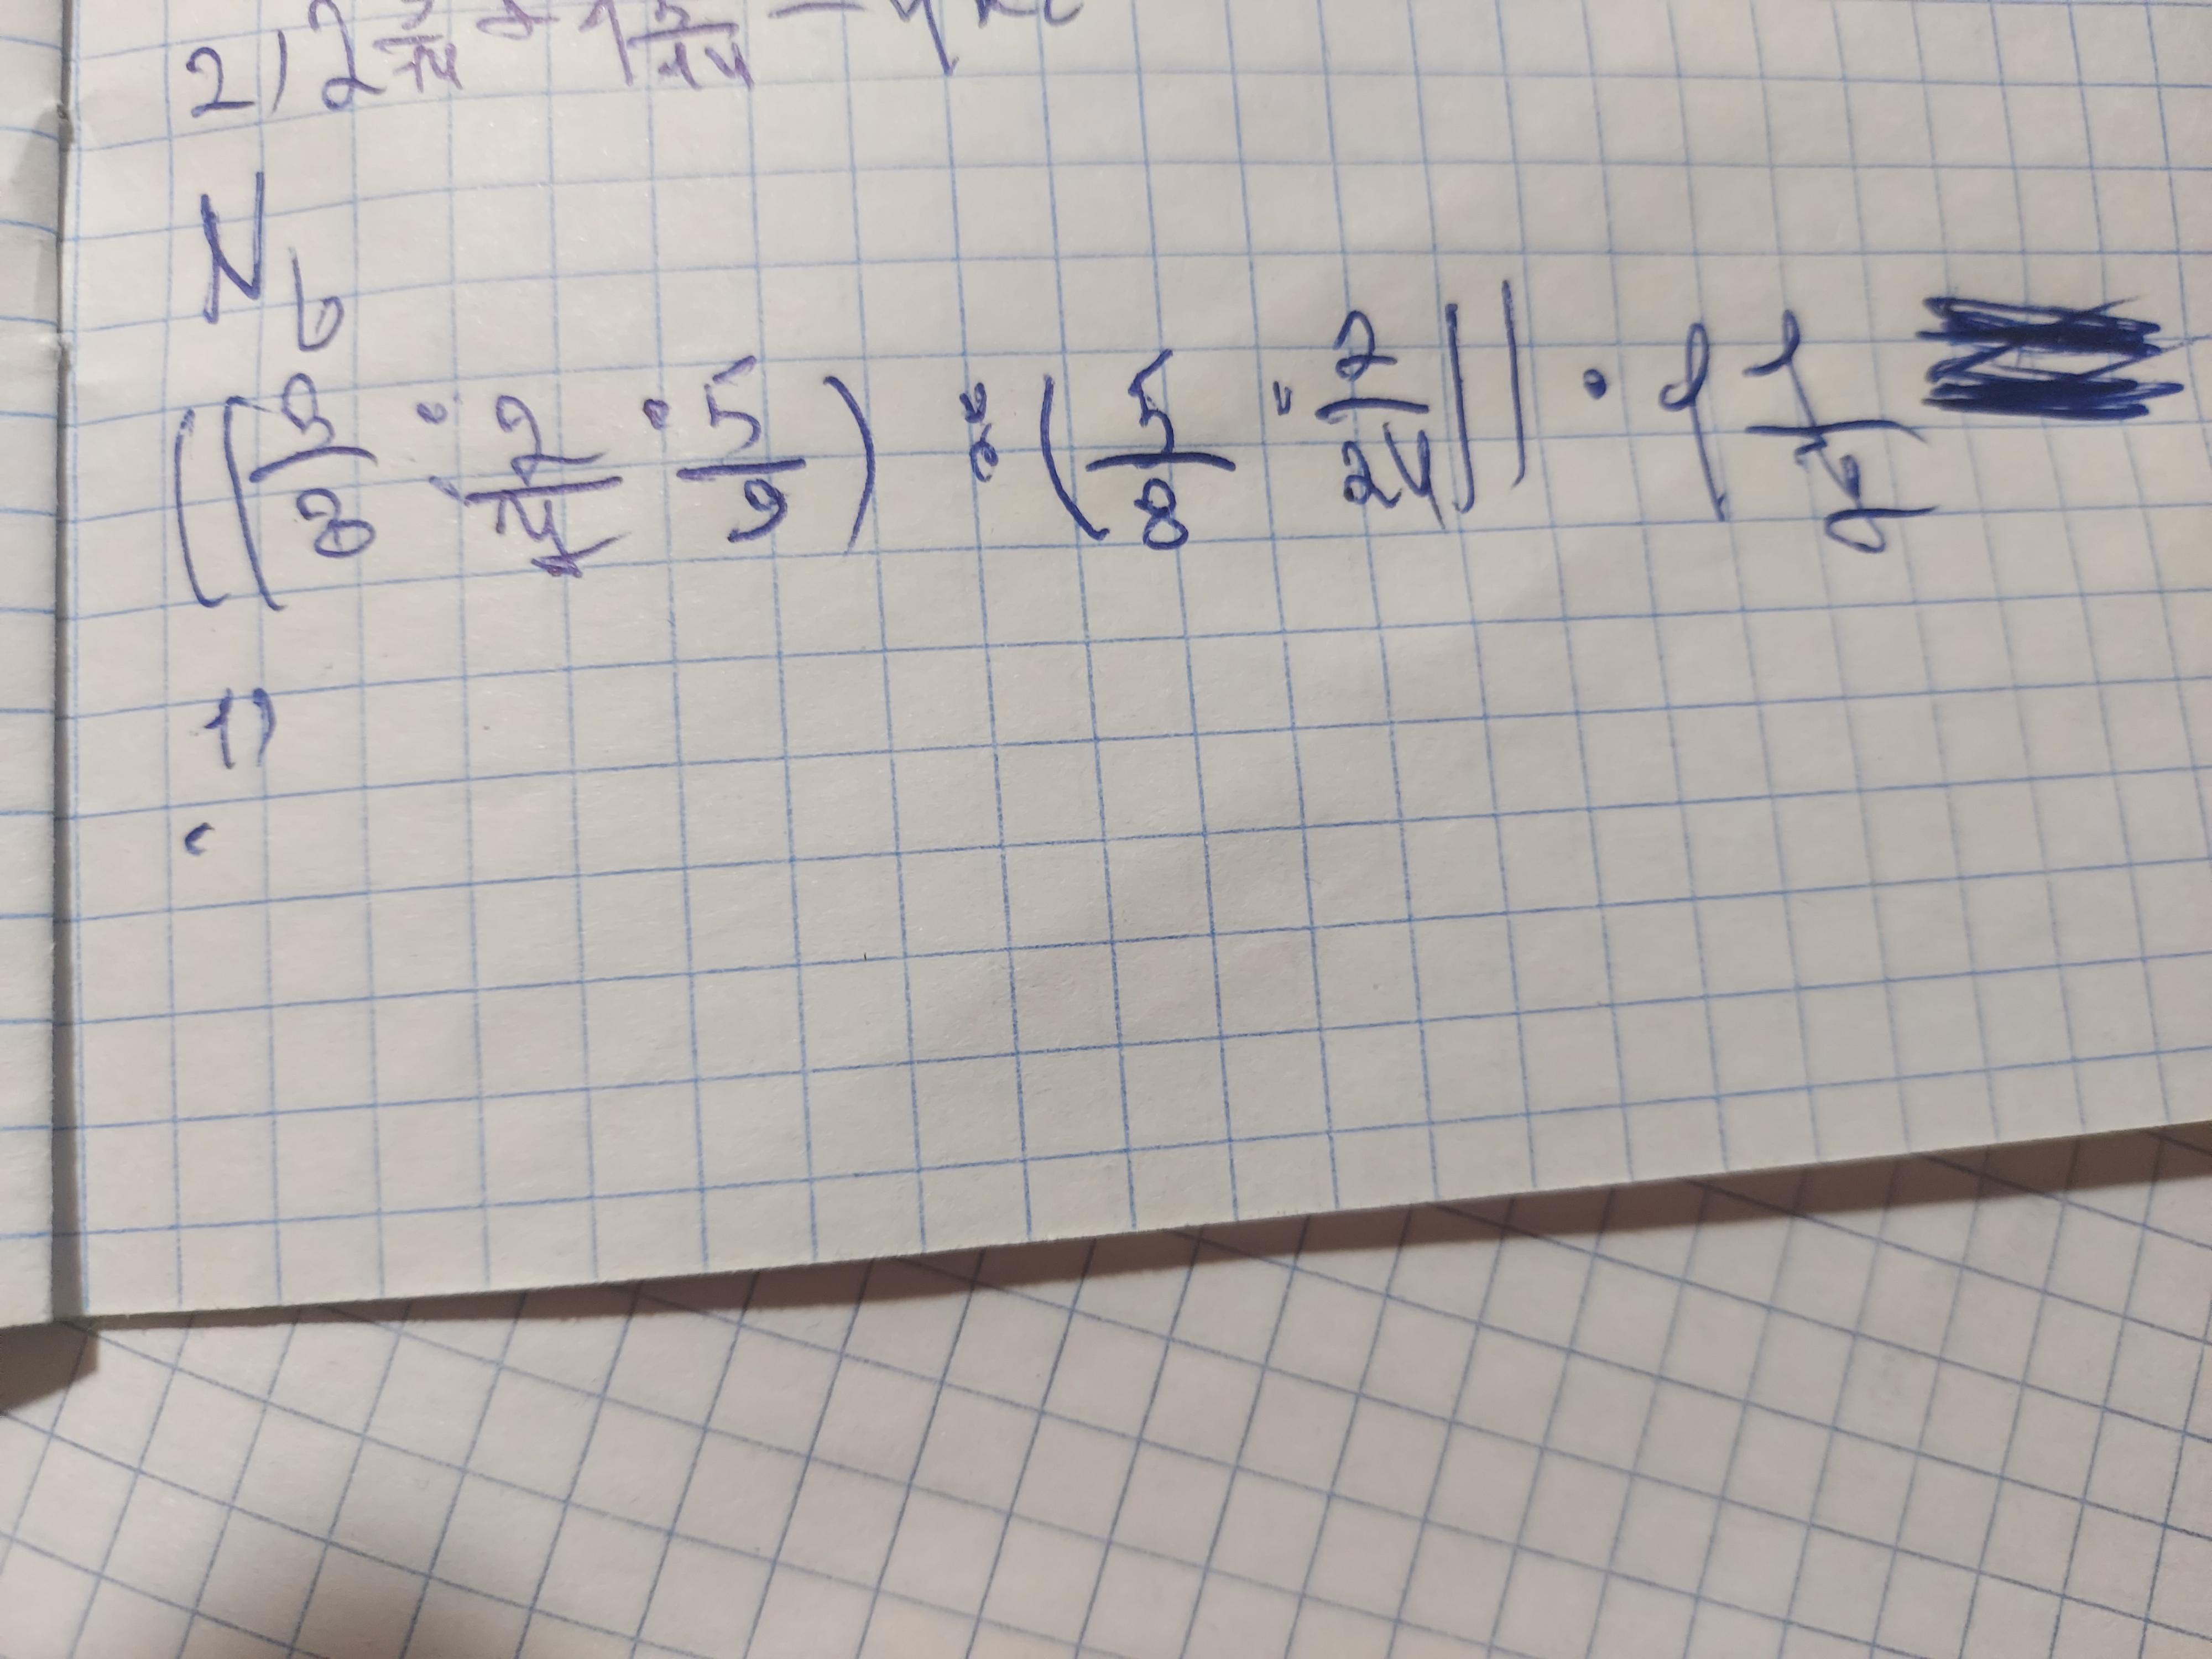 2) 2 3/14 + 1 5/14 =
№6
((3/8 · 2/14 · 5/9) : (5/8 · 2/24)) · 1 1/
1)